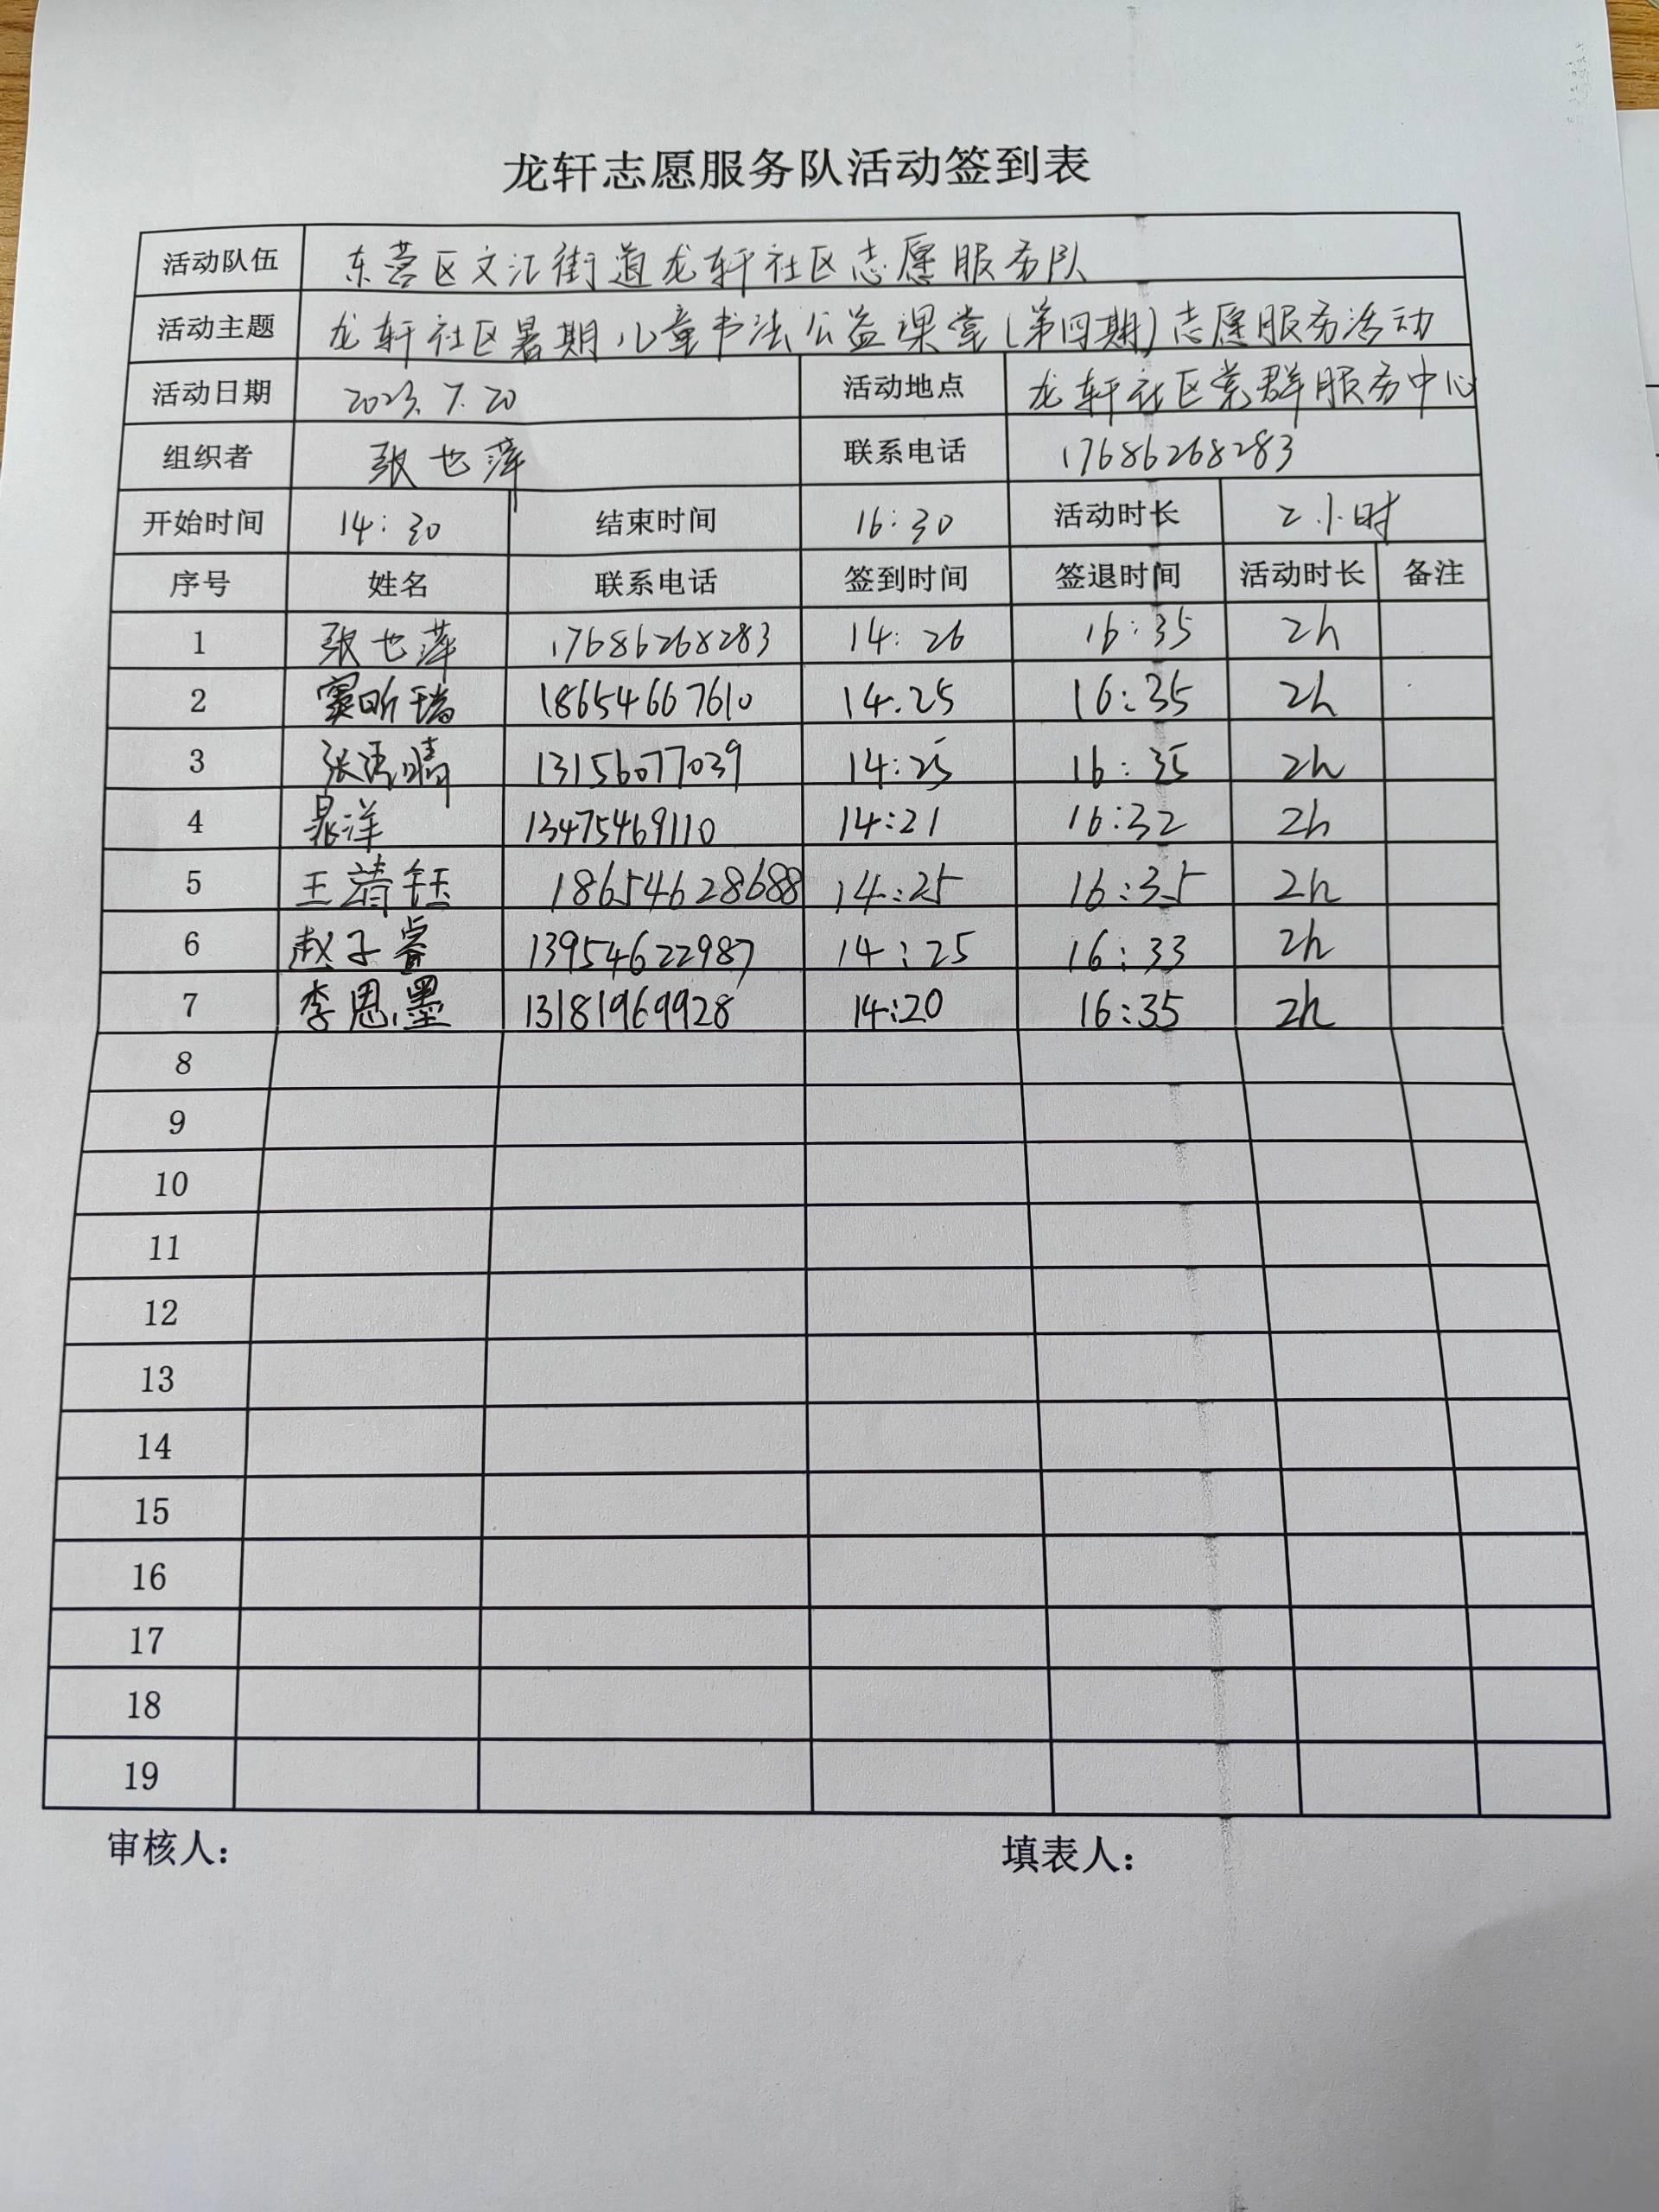 龙轩志愿服务队活动签到表
活动队伍 东营区文汇街道龙轩社区志愿服务队
活动主题 龙轩社区暑期儿童书法公益课堂(第四期)志愿服务活动
活动日期 2023.7.20 活动地点 龙轩社区党群服务中心
组织者 张也萍 联系电话 17686268283
开始时间 14:30 结束时间 16:30 活动时长 2小时
序号 姓名 联系电话 签到时间 签退时间 活动时长 备注
1 张也萍 17686268283 14:26 16:35 2h
2 窦昕瑞 18654667610 14:25 16:35 2h
3 张清晴 13156077039 14:25 16:35 2h
4 晁洋 13475469110 14:21 16:32 2h
5 王靖钰 18654628688 14:25 16:35 2h
6 赵子睿 13954622987 14:25 16:33 2h
7 李恩墨 13181969928 14:20 16:35 2h
8
9
10
11
12
13
14
15
16
17
18
19
审核人: 填表人: